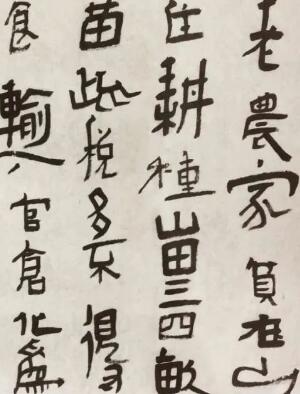 老農家貧在山
住耕種山田三四畝
苗疏税多不得
食輸入官倉化為